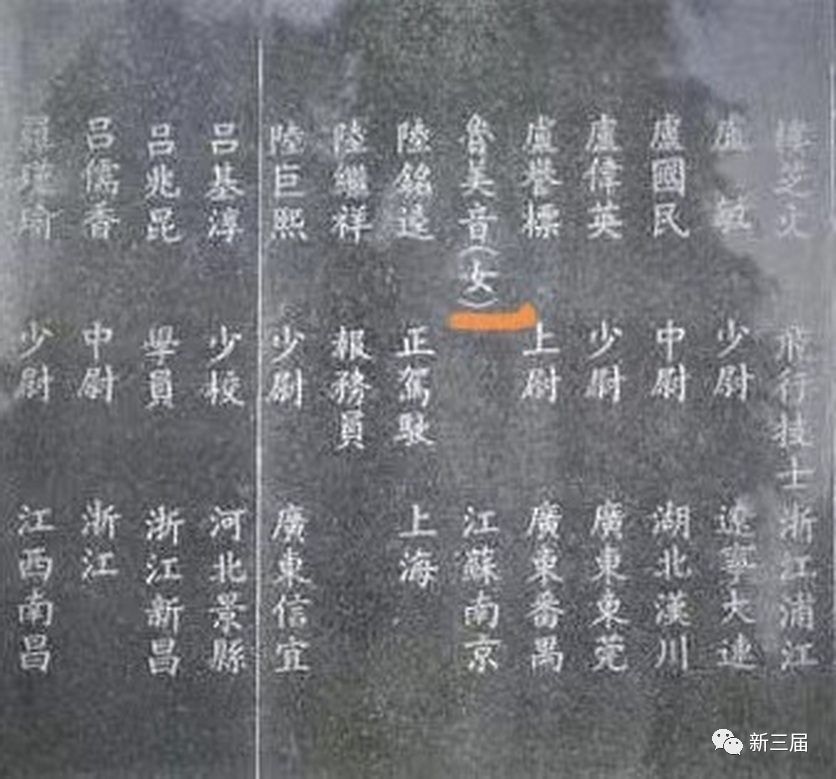 芝文 飛行技士 浙江浦江
盧敏 少尉 遼寧大連
盧國民 中尉 湖北漢川
盧偉英 少尉 廣東東莞
盧譽標 上尉 廣東番禺
魯美音(女) 江蘇南京
陸銘逵 正駕駛 上海
陸繼祥 報務員
陸巨熙 少尉 廣東信宜
呂基淳 少校 河北景縣
呂兆昆 學員 浙江新昌
呂儒香 中尉 浙江
羅 少尉 江西南昌
新三届